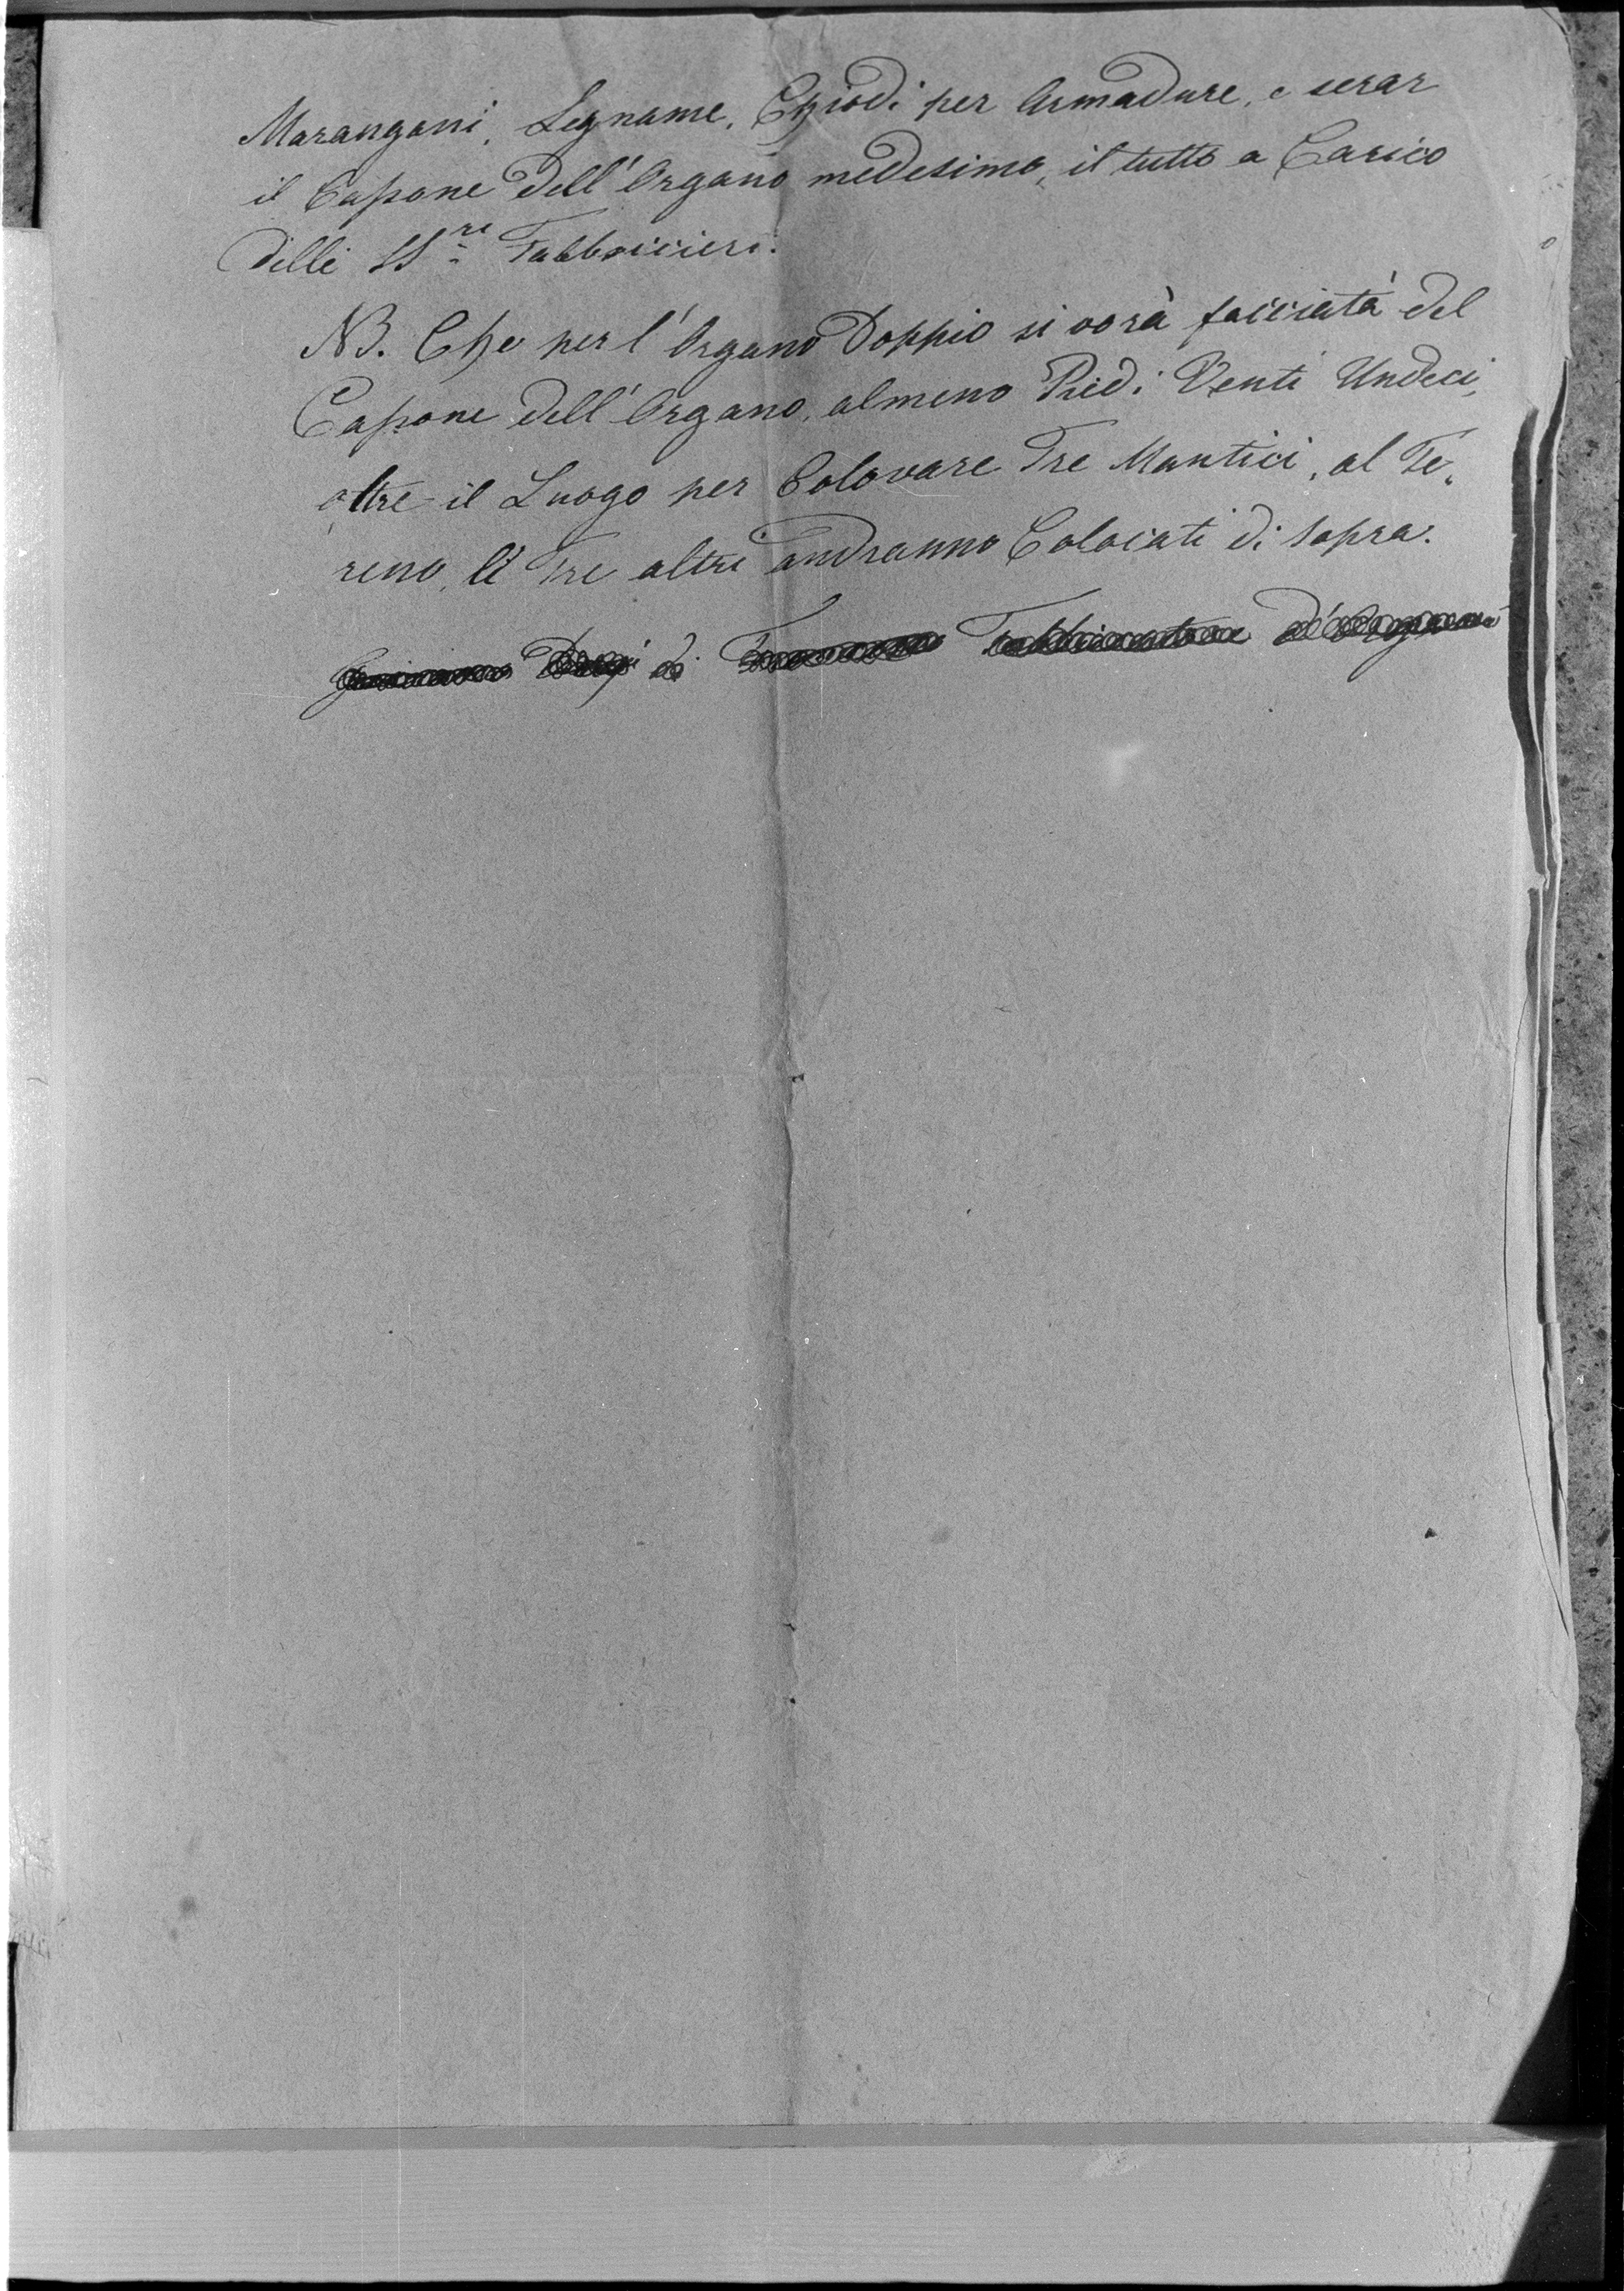 Marangoni, Legname, Chiodi per Armadure, e serar
il Cassone dell'Organo medesimo, il tutto a Carico
delli SS.ri Fabbricieri.
NB. Che per l'Organo Doppio si vorà facciatà del
Cassone dell'Organo, almeno Piedi Venti Undeci,
oltre il Luogo per Colocare Tre Mantici, al Te„
reno, li Tre altri andranno Colocati di sopra.